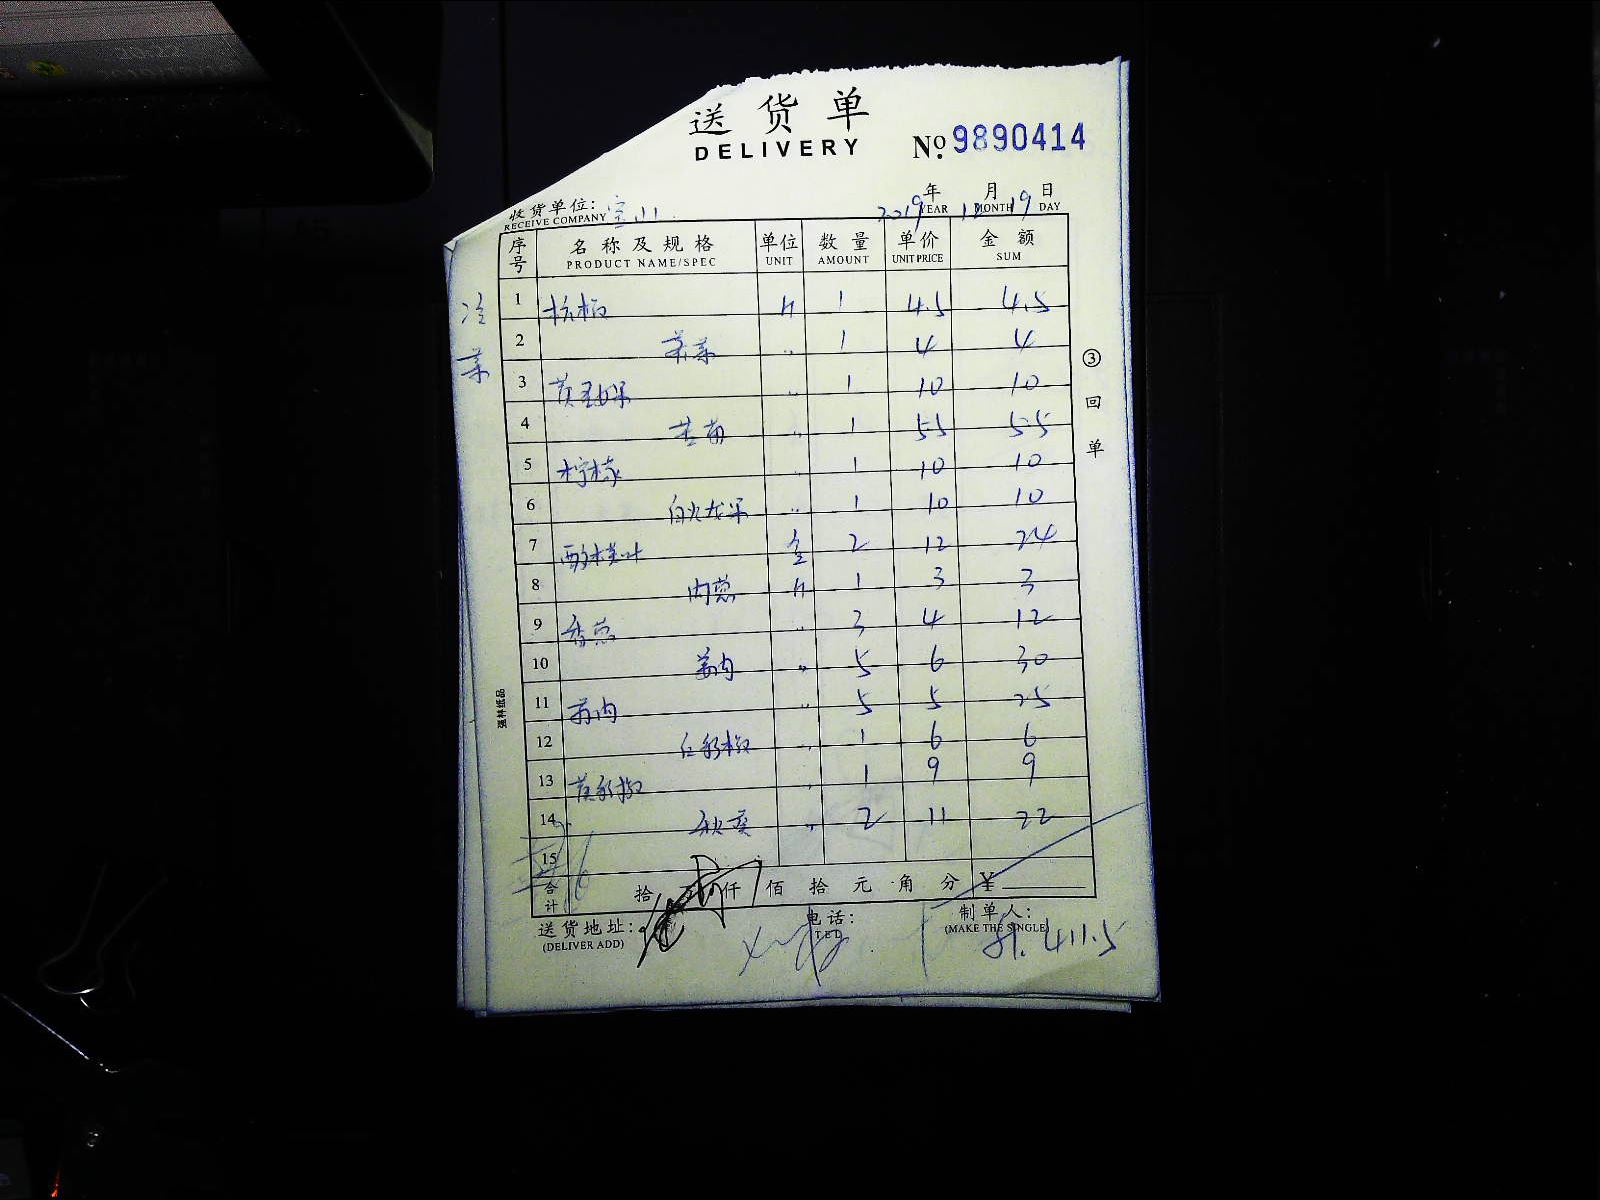 送货单
DELIVERY
№ 9890414
收货单位: 宝山
RECEIVE COMPANY
2019 年 YEAR 12 月 MONTH 19 日 DAY
序号 名称及规格 单位 数量 单价 金额
PRODUCT NAME/SPEC UNIT AMOUNT UNIT PRICE SUM
冷菜
1 斤 1 4.5 4.5
2 〃 1 4 4
3 〃 1 10 10
4 苦苗 〃 1 5.5 5.5
5 柠檬 〃 1 10 10
6 白火龙果 〃 1 10 10
7 盒 2 12 24
8 内葱 斤 1 3 3
9 香葱 〃 3 4 12
10 姜肉 〃 5 6 30
11 〃 5 5 25
12 红彩椒 〃 1 6 6
13 黄彩椒 〃 1 9 9
14 秋葵 〃 2 11 22
15
合计 拾 万 仟 佰 拾 元 角 分 ¥
送货地址: 电话: 制单人:
(DELIVER ADD) TEL (MAKE THE SINGLE)
411.5
③回单
强林纸品